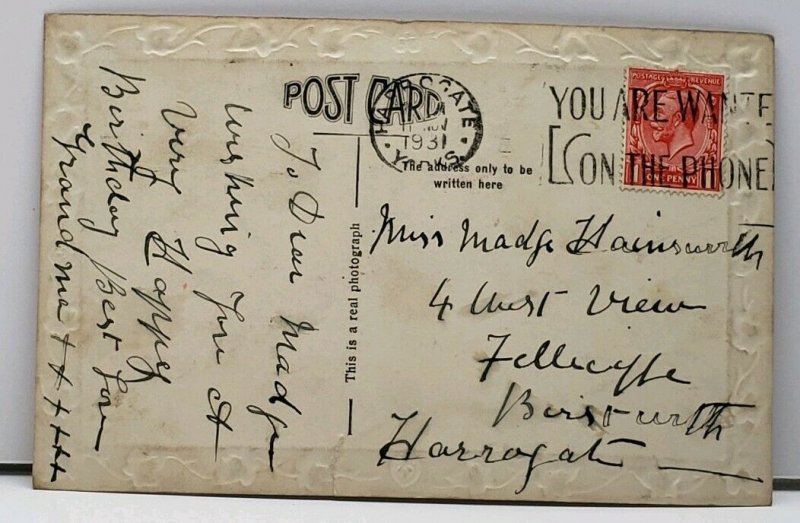 POST CARD
HARROGATE
11 NOV
1931
YORKS
YOU ARE WANTED
ON THE PHONE
POSTAGE REVENUE
ONE PENNY
The address only to be
written here
This is a real photograph
To Dear Madge
Wishing You A
Very Happy
Birthday Best Love
Grandma + + + + + +
Miss Madge Hainsworth
4 West View
Birstwith
Harrogate